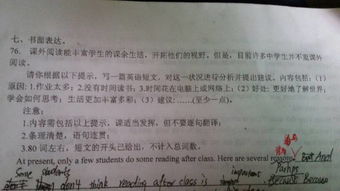 七、书面表达。
76. 课外阅读能丰富学生的课余生活，开拓他们的视野。但是，目前许多中学生并不重视课外
阅读。
请你根据以下提示，写一篇英语短文，对这一状况进行分析并提出建议。内容包括：(1)
原因：1.作业太多；2.没有时间读书；3.时间花在电脑上或网络上；(2) 好处：更好地了解世界；
学会如何思考；生活更加丰富多彩；(3) 建议：……(至少一点)。
注意：
1.内容需包括以上提示，课适当发挥，但不要逐句翻译；
2.条理清楚，语句连贯；
3.80词左右。短文的开头已给出，不计入总词数。
At present, only a few students do some reading after class. Here are several reasons. But And
Some students important
don't think reading after class is Because Because